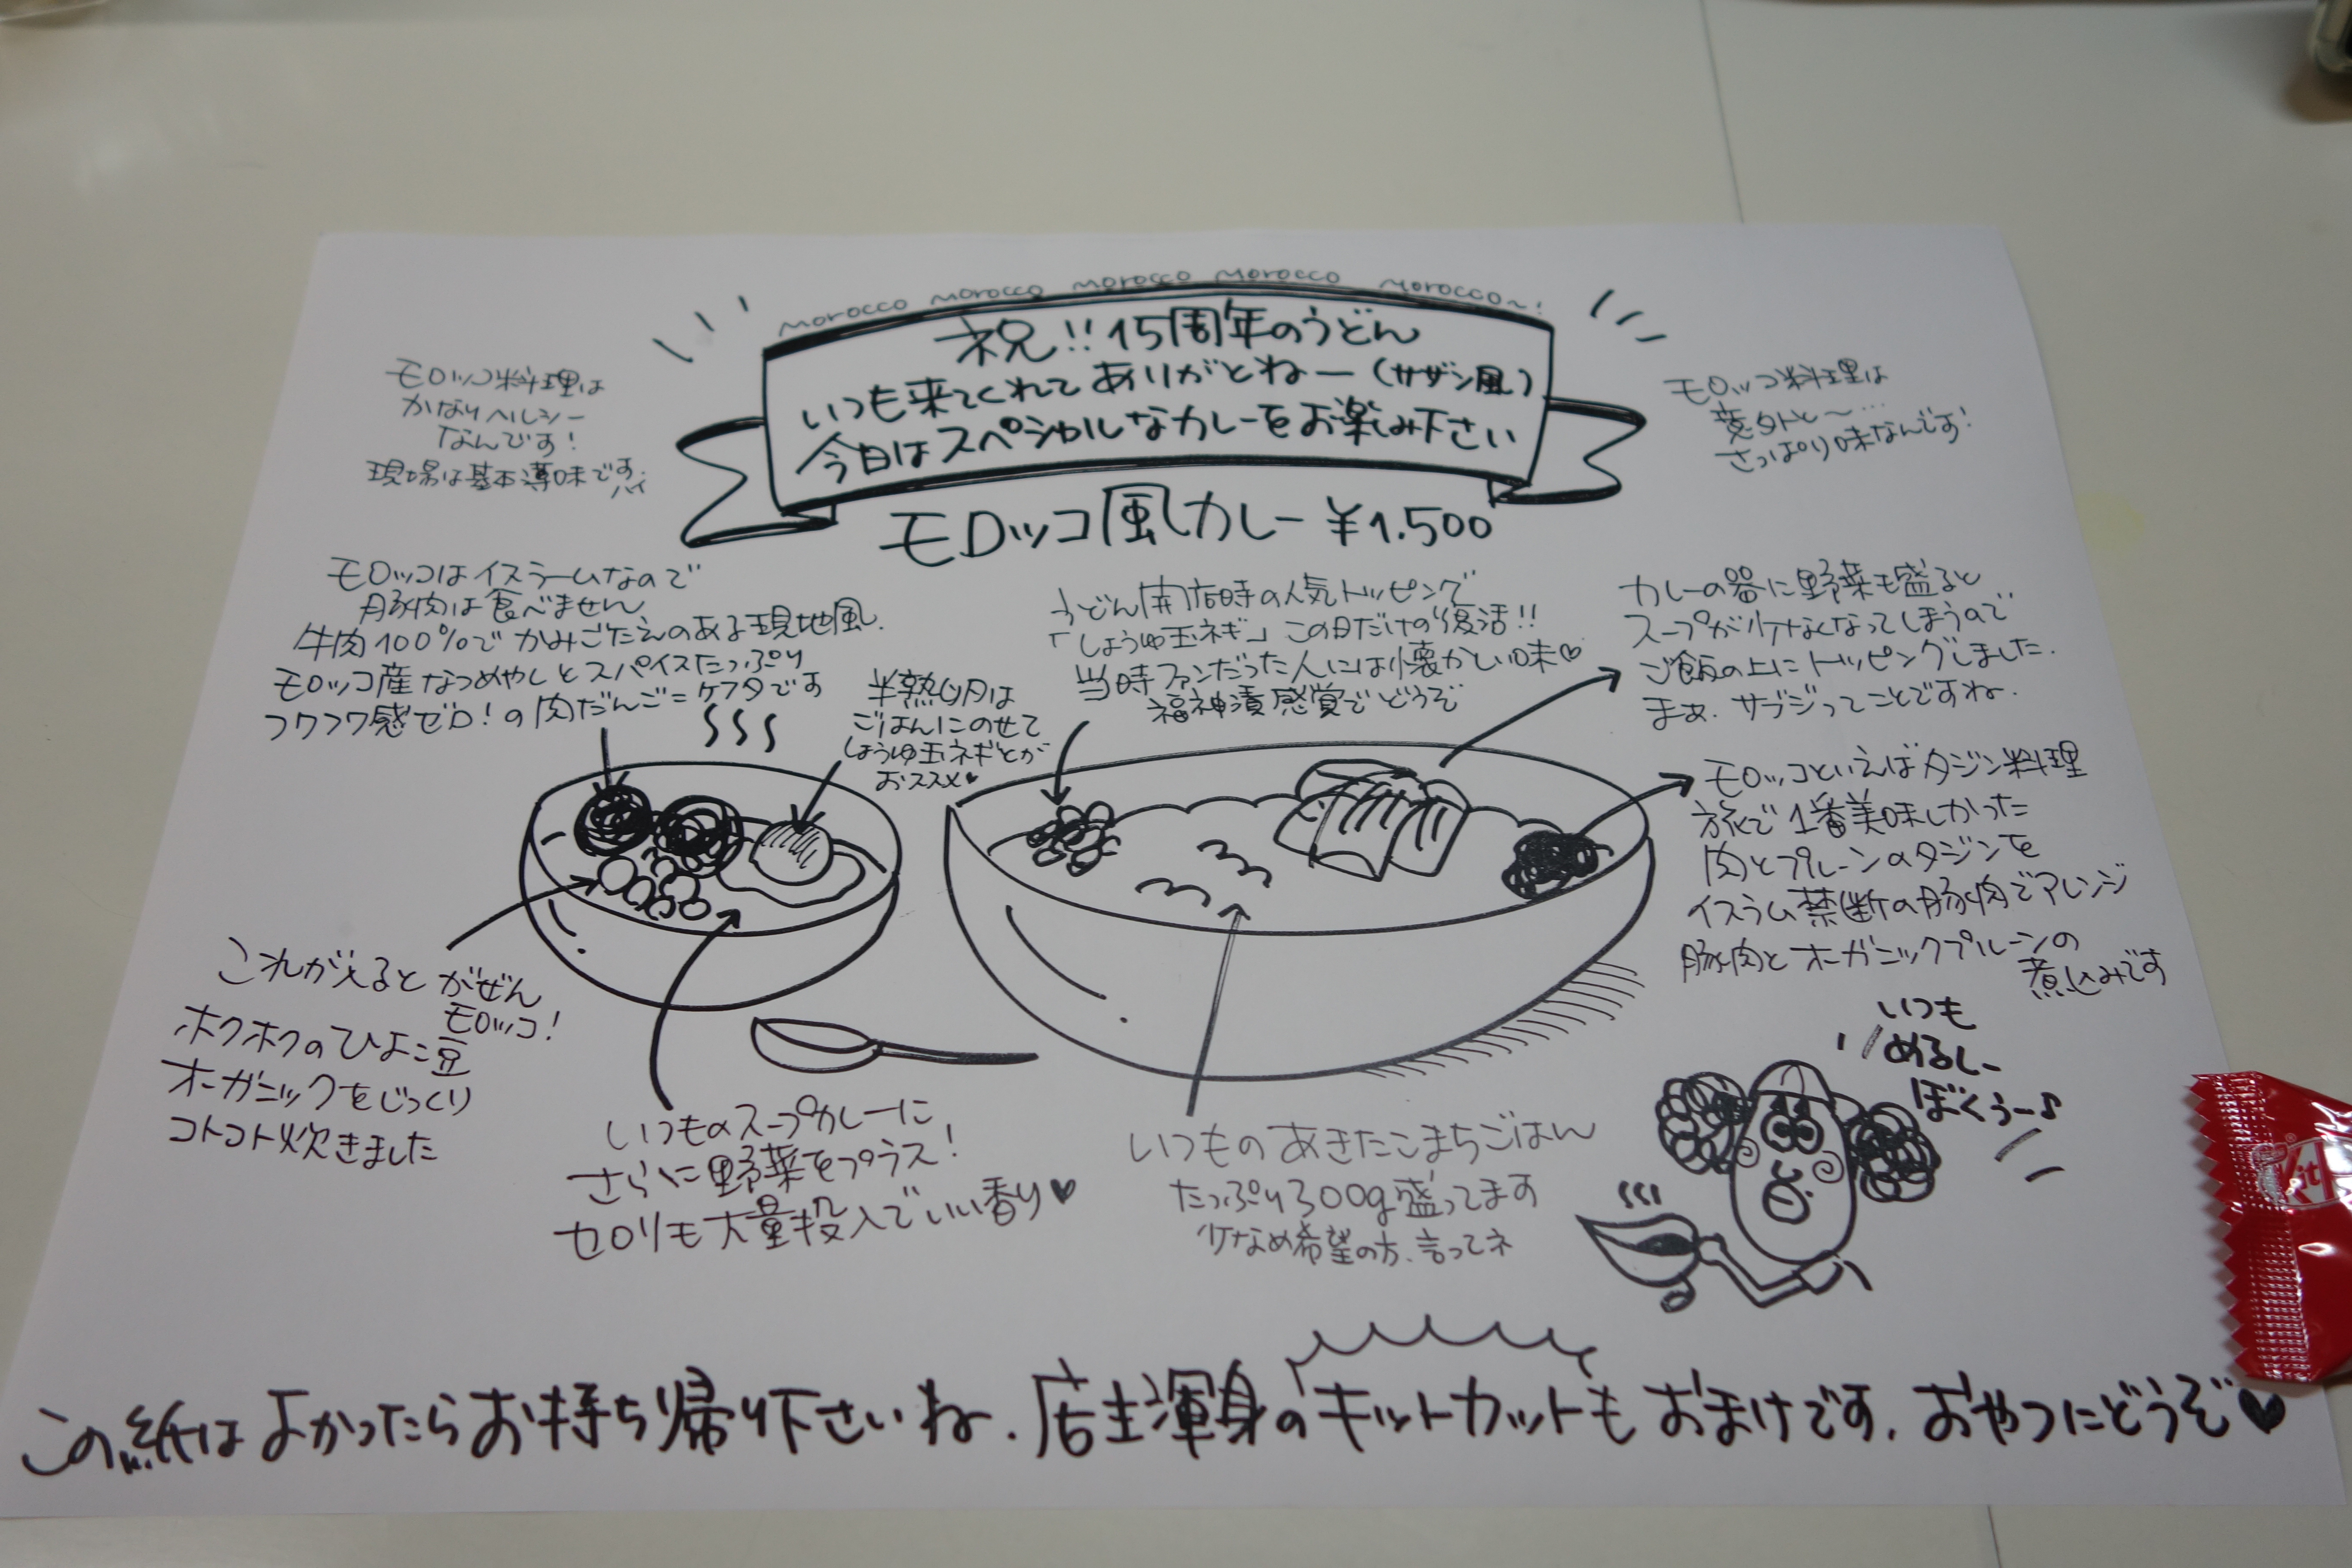 morocco morocco morocco morocco morocco~!
祝!!15周年のうどん
いつも来てくれてありがとねー(サザン風)
今日はスペシャルなカレーをお楽しみ下さい
モロッコ風カレー ¥1.500
モロッコ料理は
かなりヘルシー
なんです!
現場は基本薄味です、ハイ
モロッコ料理は
意外と~…
さっぱり味なんです!
モロッコはイスラームなので
豚肉は食べません
牛肉100%でかみごたえのある現地風.
モロッコ産なつめやしとスパイスたっぷり
フワフワ感ゼロ!の肉だんご=ケフタです
半熟卵は
ごはんにのせて
しょうゆ玉ネギとが
おススメ♥
うどん開店時の人気トッピングで
「しょうゆ玉ネギ」この日だけの復活!!
当時ファンだった人には懐かしい味♡
福神漬感覚でどうぞ
カレーの器に野菜も盛ると
スープが少なくなってしまうので
ご飯の上にトッピングしました.
まぁ.サブジってことですね.
モロッコといえばタジン料理
旅で1番美味しかった
肉とプルーンのタジンを
イスラム禁断の豚肉でアレンジ
豚肉とオーガニックプルーンの
煮込みです
これが入るとがぜん
モロッコ!
ホクホクのひよこ豆
オーガニックをじっくり
コトコト炊きました
いつものスープカレーに
さらに野菜をプラス!
セロリも大量投入でいい香り♥
いつものあきたこまちごはん
たっぷり300g盛ってます
少なめ希望の方、言ってネ
いつも
めるしー
ぼくぅー♪
Kit
この紙はよかったらお持ち帰り下さいね.店主渾身のキットカットもおまけです.おやつにどうぞ♥